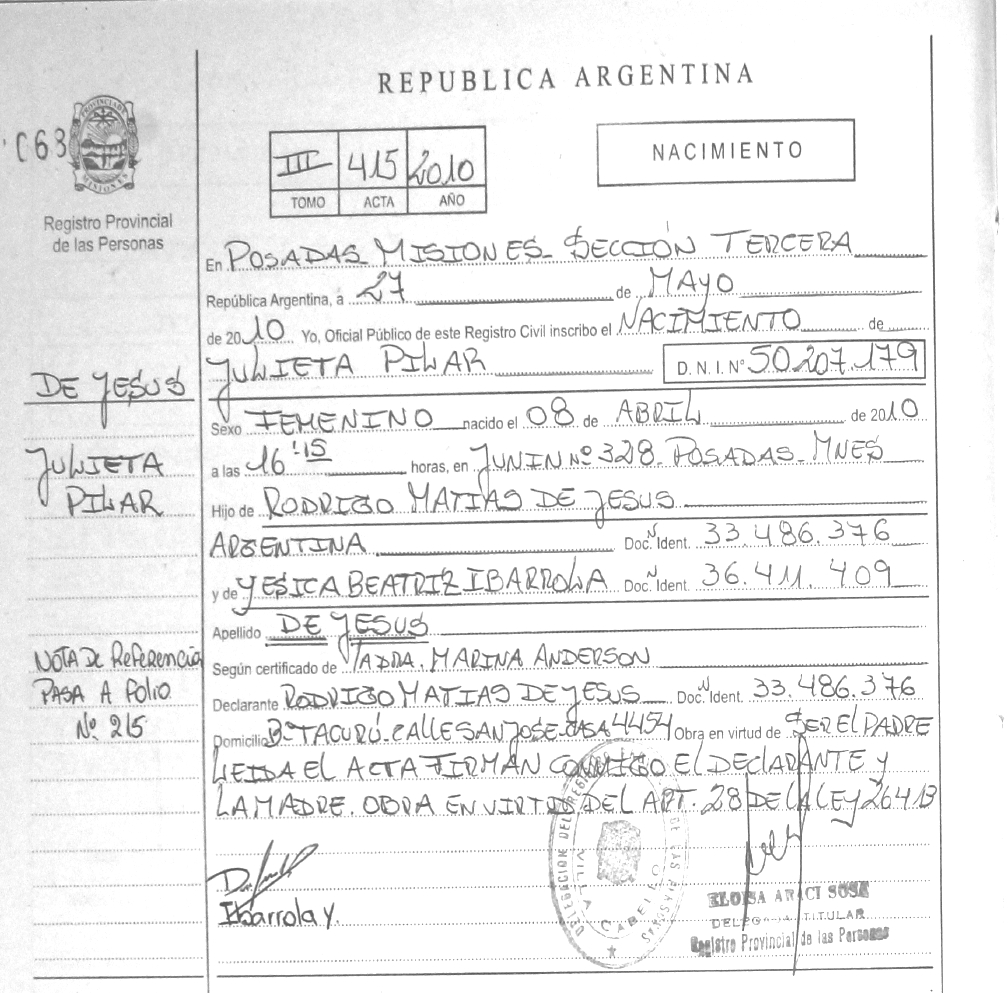 REPUBLICA ARGENTINA
C63
PROVINCIA DE
MISIONES
Registro Provincial
de las Personas
III 415 2010
TOMO ACTA AÑO
NACIMIENTO
En POSADAS MISIONES SECCIÓN TERCERA
República Argentina, á 27 de MAYO
de 2010 Yo, Oficial Público de este Registro Civil inscribo el NACIMIENTO de
JULIETA PILAR D.N.I. Nº 50.207.179
Sexo FEMENINO nacido el 08 de ABRIL de 2010
a las 16:15 horas, en JUNIN Nº 328 POSADAS MNES
Hijo de RODRIGO MATIAS DE JESUS
ARGENTINA Doc. N Ident. 33.486.376
y de YESICA BEATRIZ IBARROLA Doc. N Ident. 36.411.409
Apellido DE JESUS
Según certificado de MARINA ANDERSON
Declarante RODRIGO MATIAS DE JESUS Doc. N Ident. 33.486.376
Domicilio Bº TACURÚ CALLE SAN JOSE CASA 4454 Obra en virtud de SER EL PADRE
LEIDA EL ACTA FIRMAN CONMIGO EL DECLARANTE Y
LA MADRE. OBRA EN VIRTUD DEL ART. 28 DE LA LEY 26413
DE JESUS
JULIETA
PILAR
NOTA DE Referencia
PASA A Folio
Nº 215
Ibarrola y.
DELEGACION DEL REG DE LAS PERSONAS
VILLA CABELLO
ELOISA ARACI SOSA
DELEGADA TITULAR
Registro Provincial de las Personas